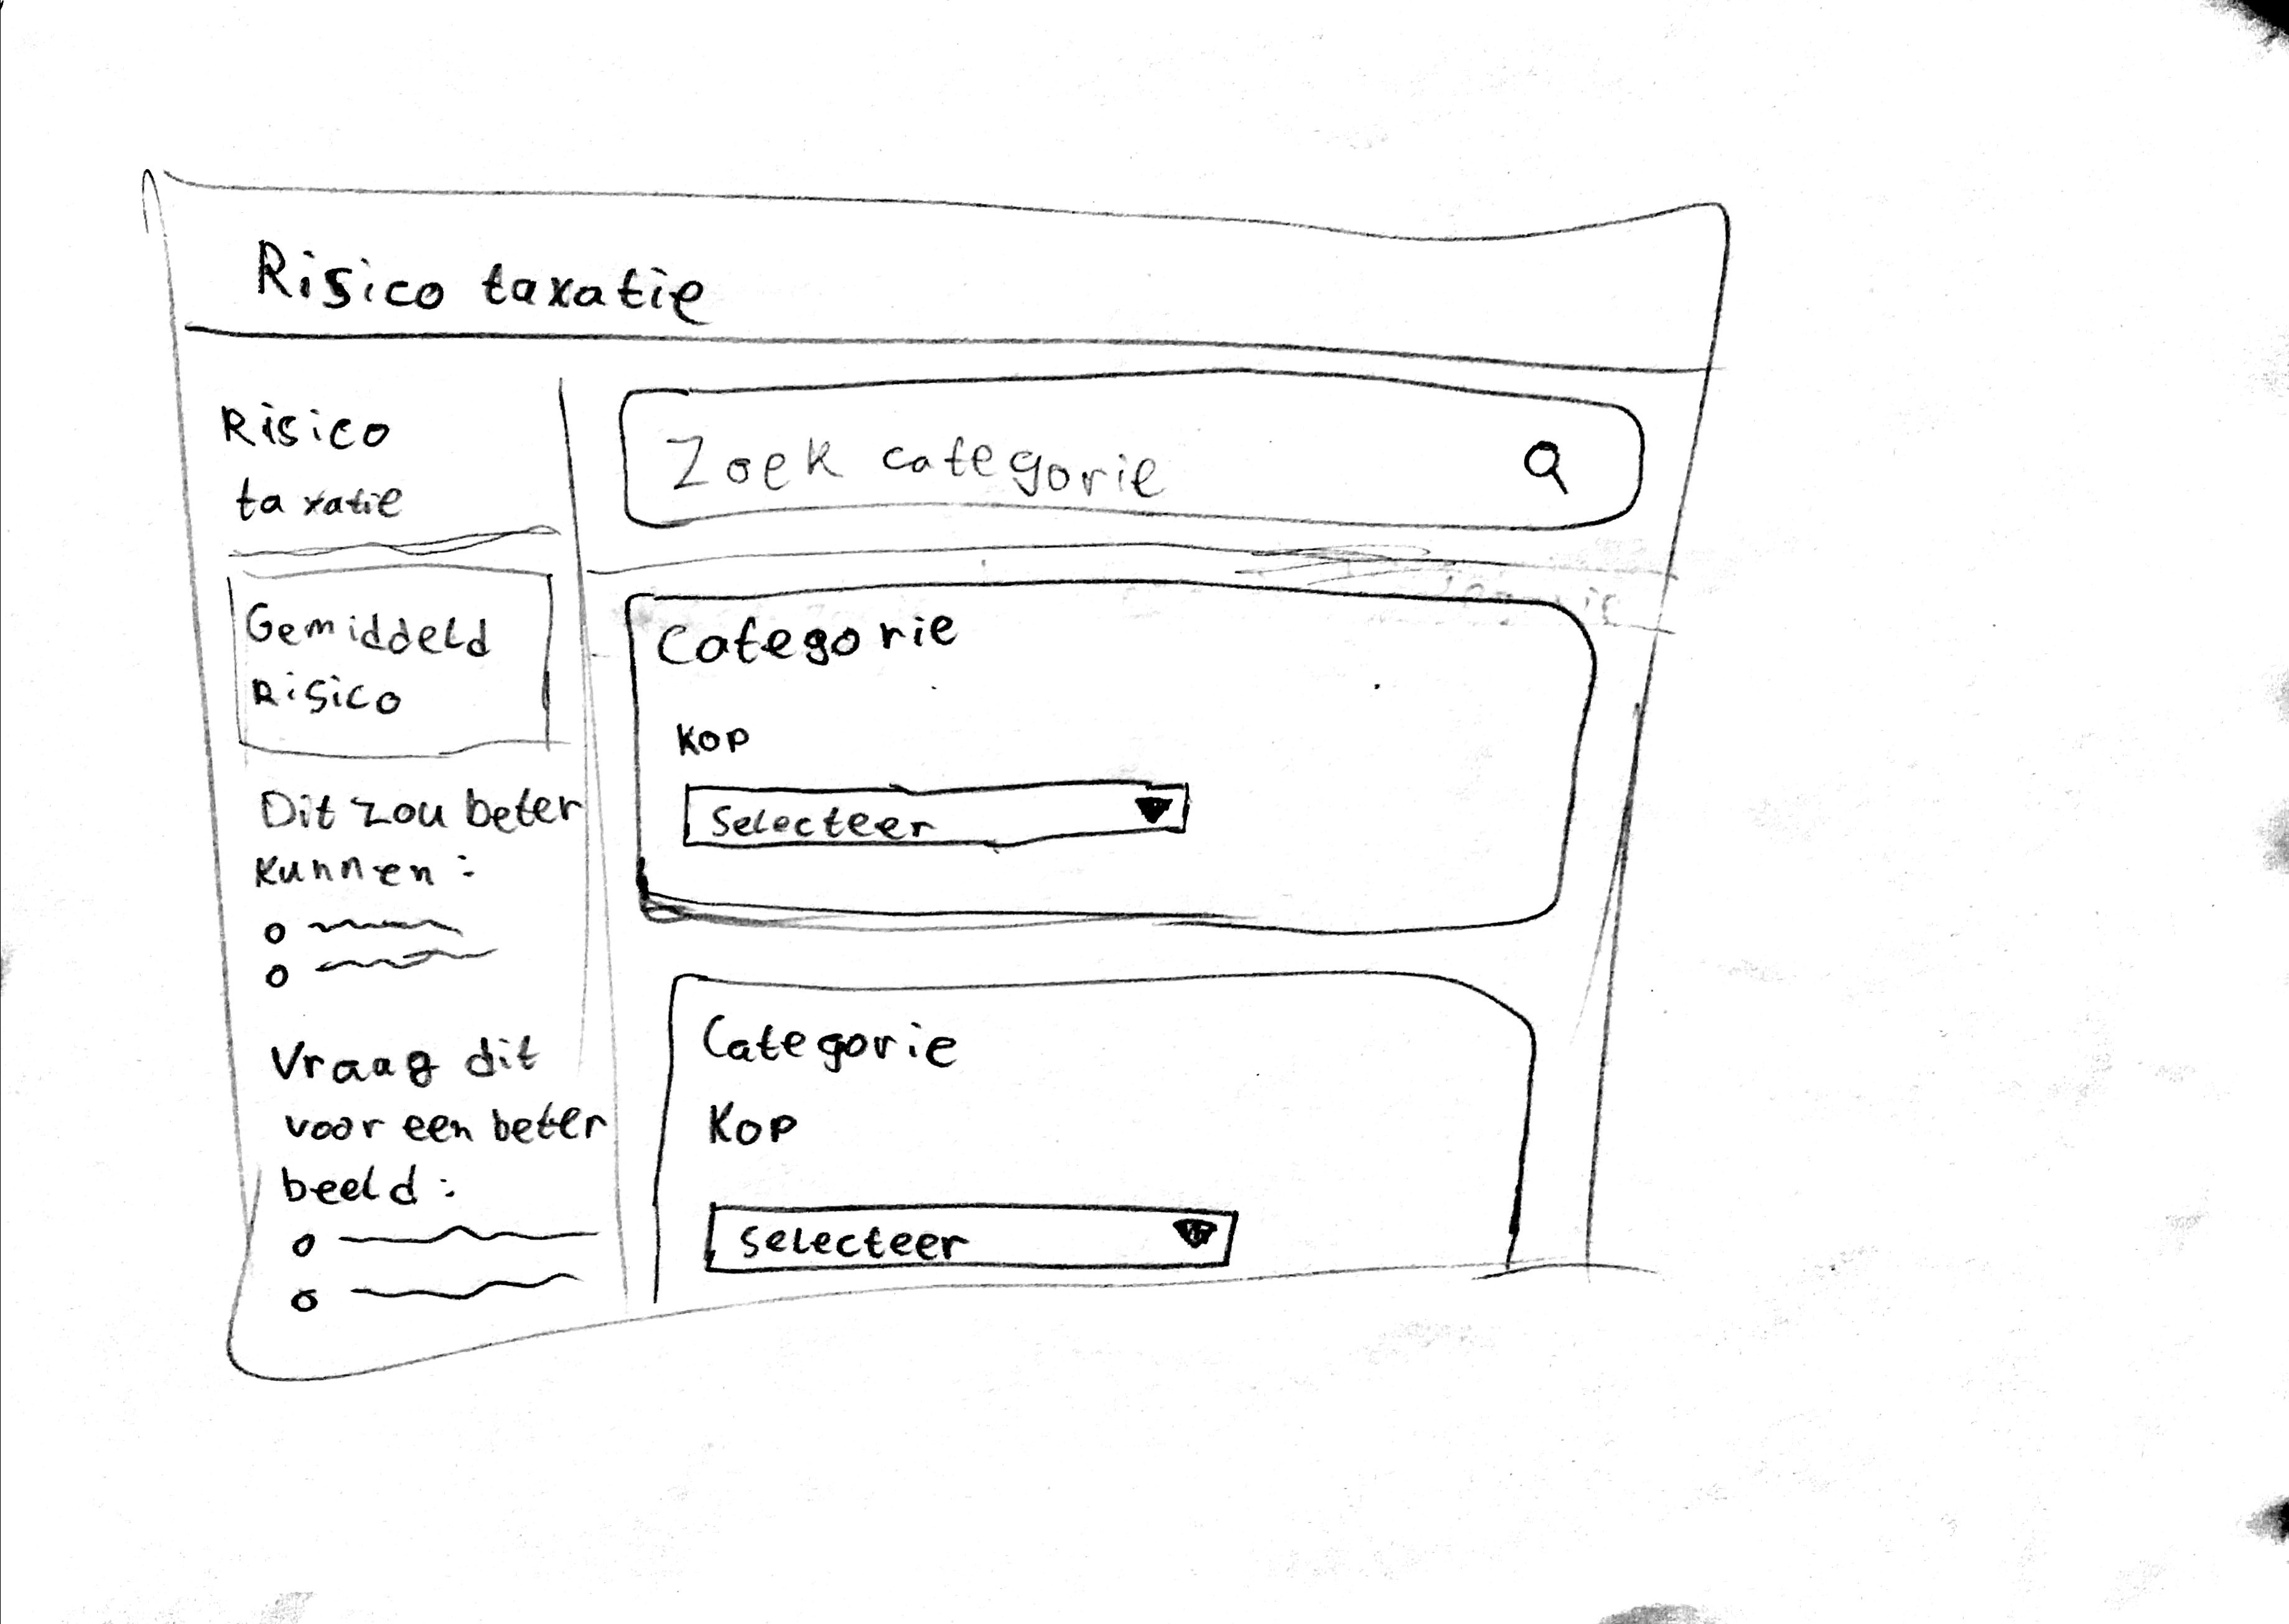 Risico taxatie
Risico
taxatie
Gemiddeld
Risico
Dit zou beter
kunnen:
Vraag dit
voor een beter
beeld:
Zoek categorie
Categorie
Kop
Selecteer
Categorie
Kop
Selecteer